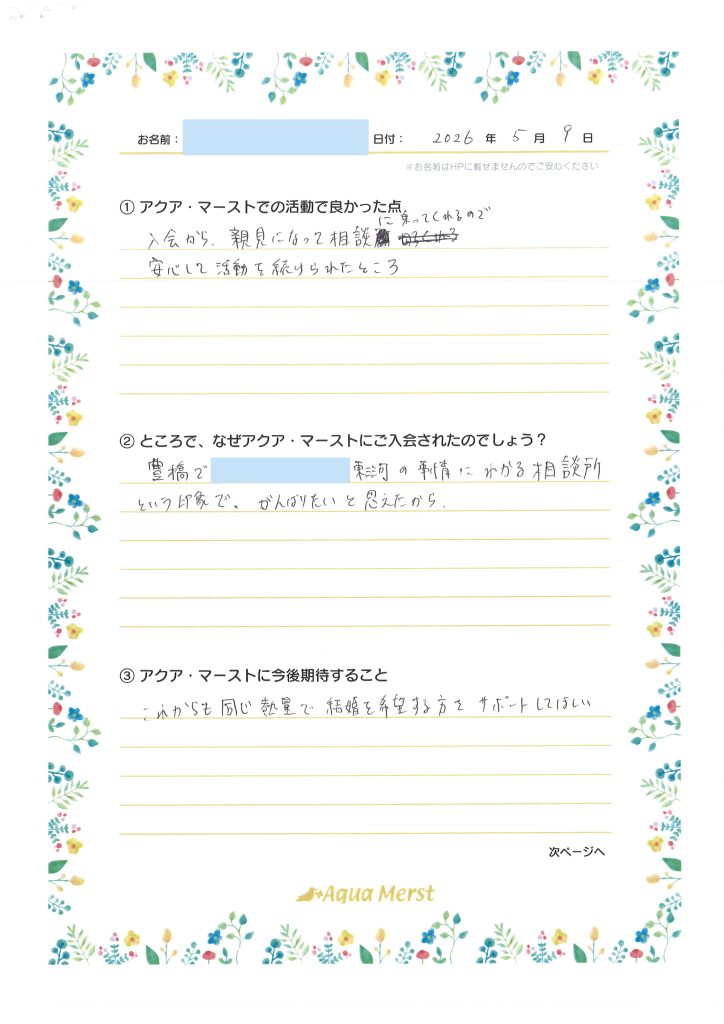 お名前： 日付： 2026 年 5 月 9 日
※お名前はHPに載せませんのでご安心ください
① アクア・マーストでの活動で良かった点
入会から、親見になって相談に乗ってくれるので
安心して活動を続けられたところ
② ところで、なぜアクア・マーストにご入会されたのでしょう？
豊橋で 東三河の事情にわかる相談所
という印象で、がんばりたいと思えたから.
③ アクア・マーストに今後期待すること
これからも同じ熱量で結婚を希望する方をサポートしてほしい
次ページへ
Aqua Merst